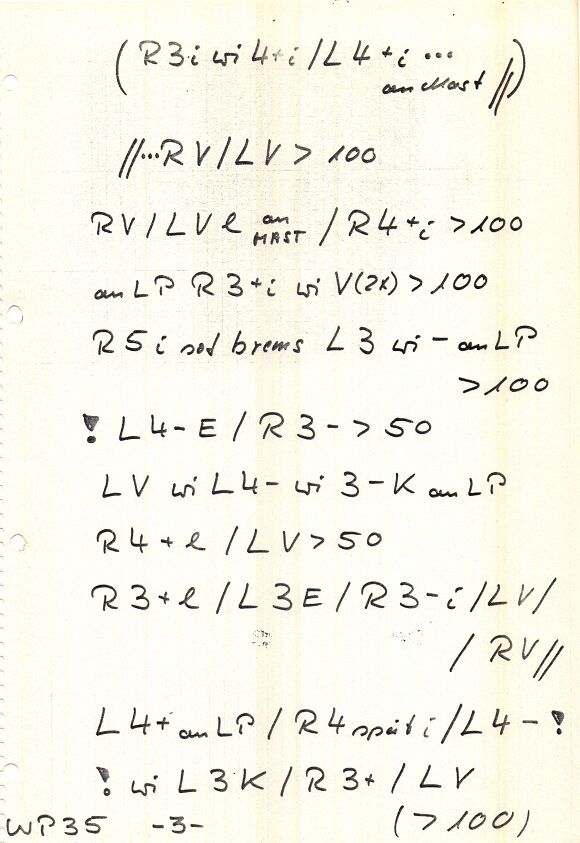 ( R3i wi 4+i / L4+i ...
an Mast // )
//...RV/LV > 100
RV/LV l an MAST / R4+i > 100
an LP R3+i wi V(2x) > 100
R5i sof brems L3 wi - an LP
> 100
! L4- E / R3- > 50
LV wi L4- wi 3-K an LP
R4+l / LV > 50
R3+l / L3E / R3-i / LV /
/ RV //
L4+ an LP / R4 spät i / L4- !
! wi L3K / R3+ / LV
WP35 -3- (> 100)